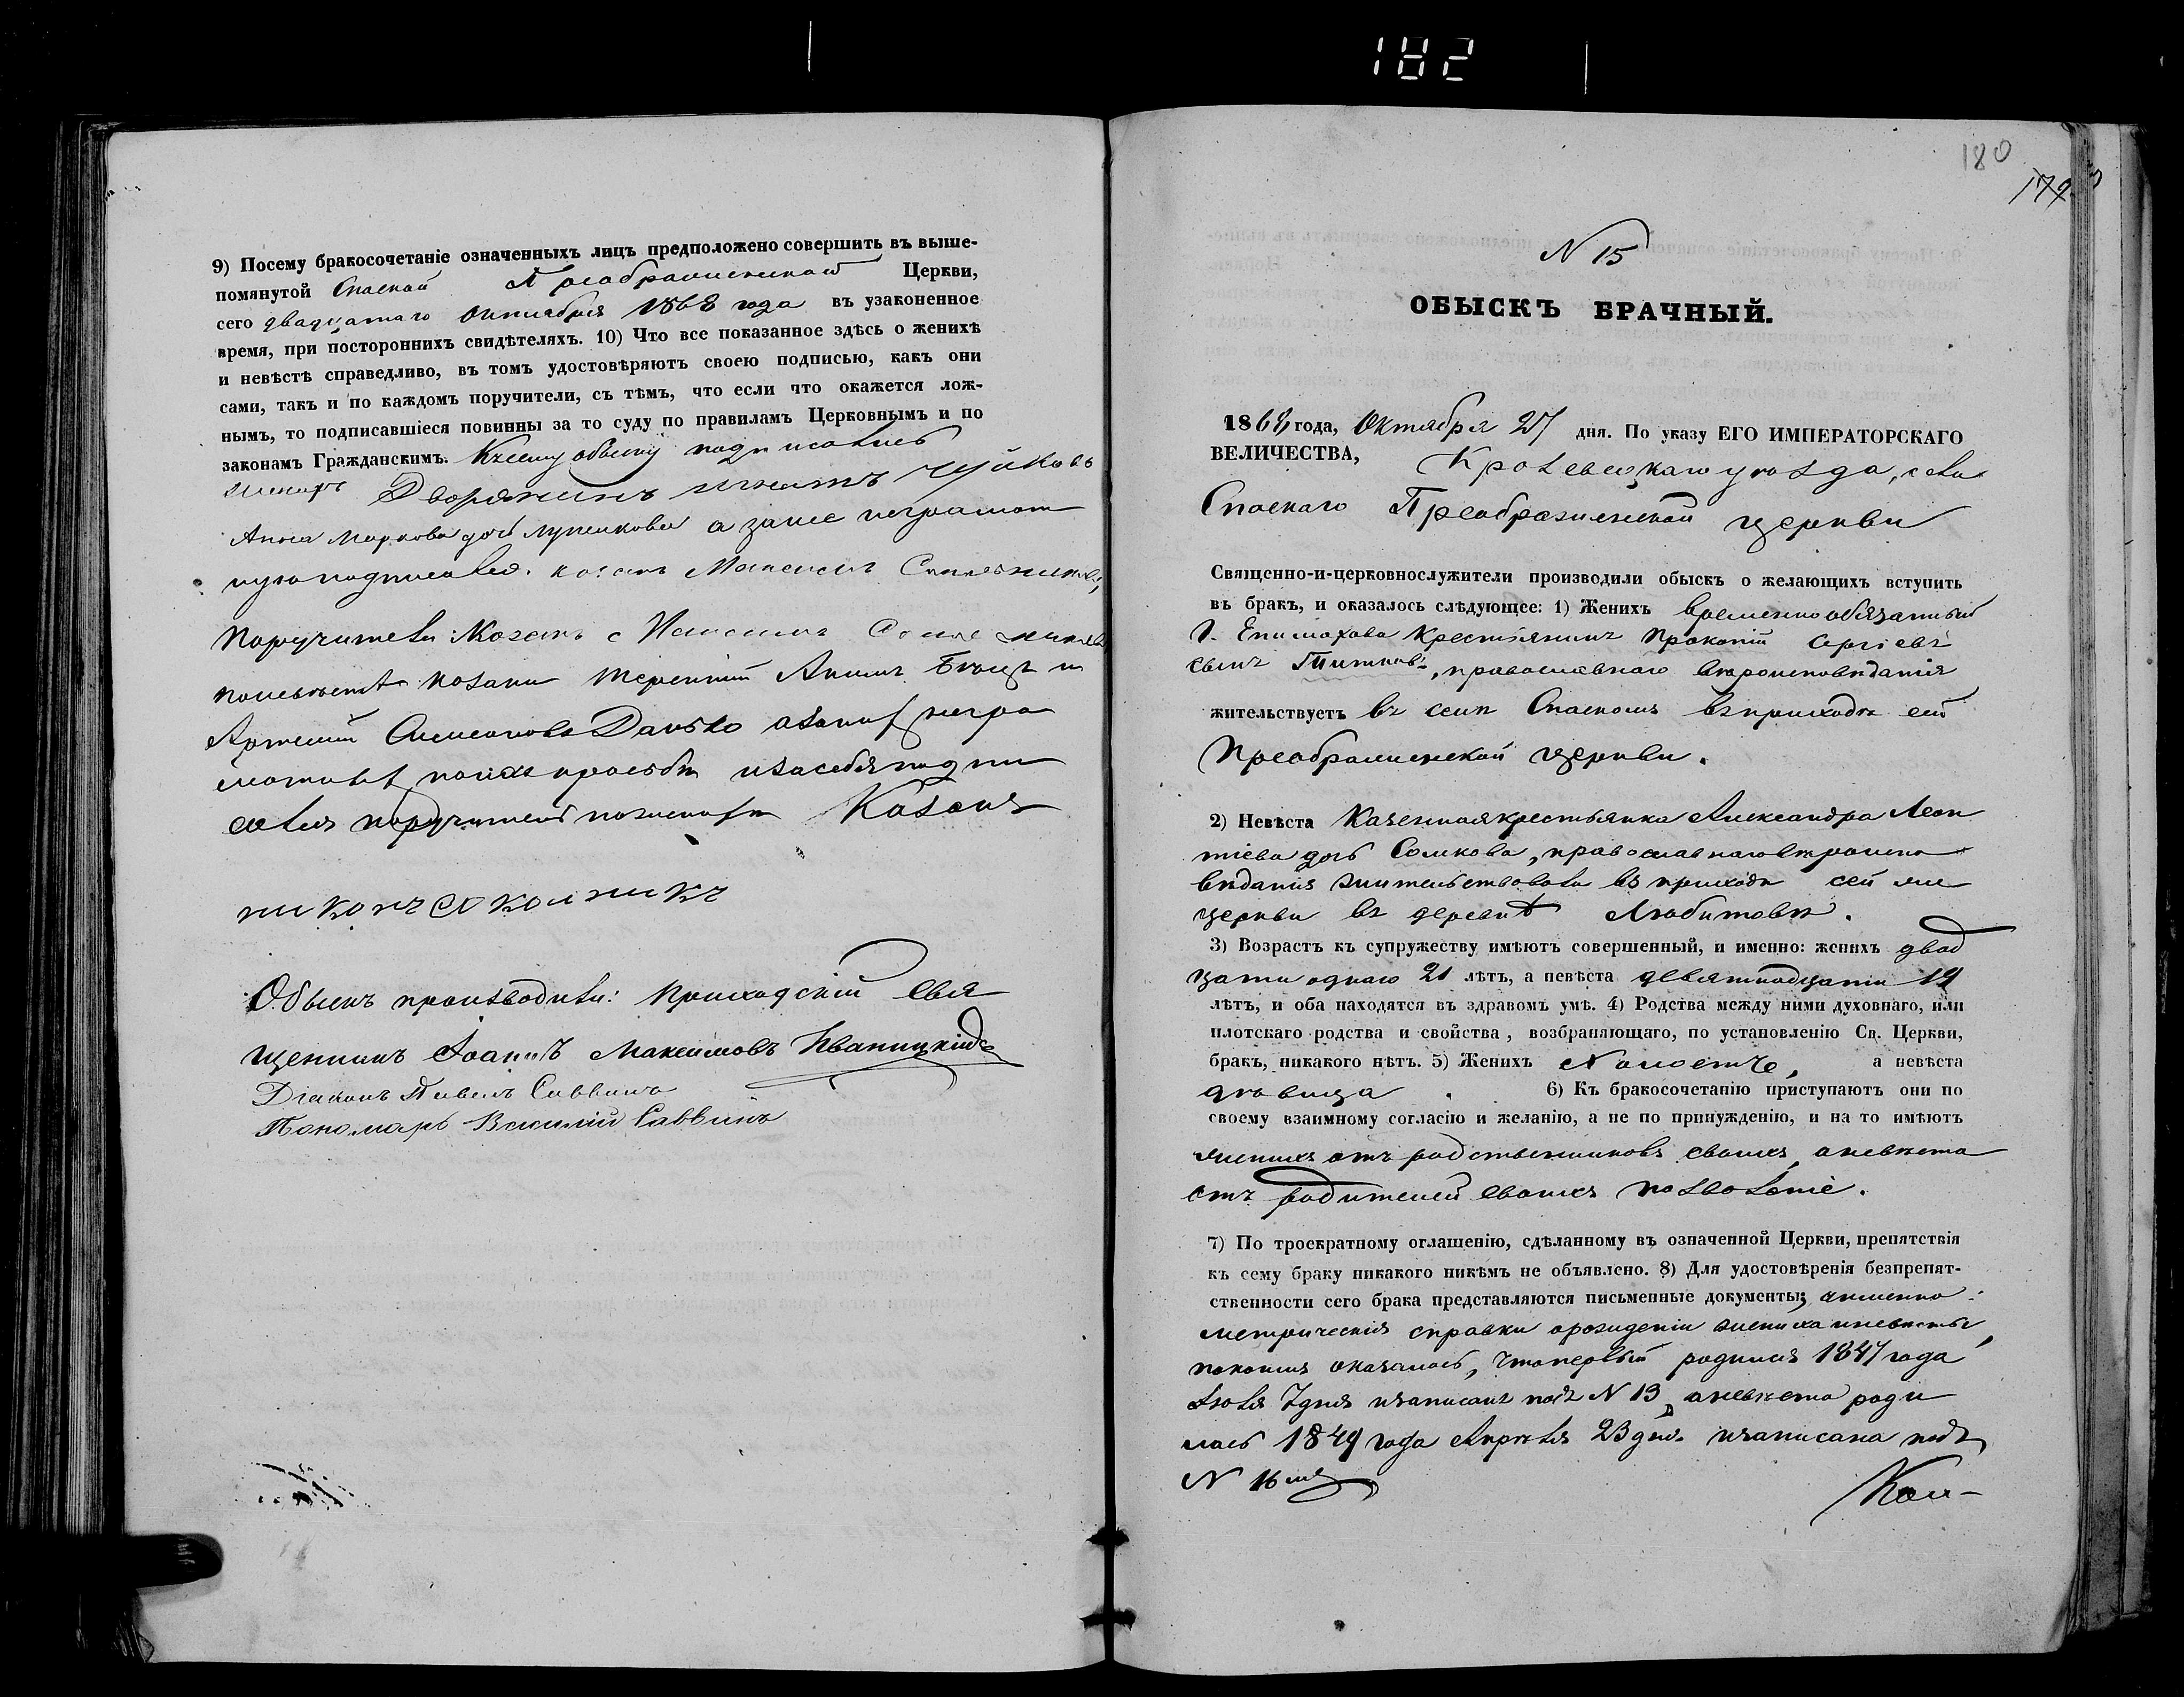 182
9) Посему бракосочетаніе означенныхъ лицъ предположено совершить въ выше-
помянутой Спаской Преображенской Церкви,
сего двадцатаго Октября 1868 года въ узаконенное
время, при постороннихъ свидѣтеляхъ. 10) Что все показанное здѣсь о женихѣ
и невѣстѣ справедливо, въ томъ удостовѣряютъ своею подписью, какъ они
сами, такъ и по каждомъ поручители, съ тѣмъ, что если что окажется лож-
нымъ, то подписавшіеся повинны за то суду по правиламъ Церковнымъ и по
законамъ Гражданскимъ. Ксему обыску подписались
женихъ Дворянинъ Чуйковъ
Маркова дочь а занее неграмот
ную подписался козакъ Максимъ
Поручители: Козакъ
по невѣстѣ козаки Терентій Акимъ Бѣлецъ и
Артемій Симоновъ Данько
по ихъ прозьбѣ изасебя подпи
сался поручитель поженихѣ Козакъ
никонъ соколникъ
Обыскъ производили: Приходскій Свя
щенникъ Іоаннъ Максимовъ Иваницкій
Діаконъ Павелъ Саввинъ
Пономарь Василій Саввинъ
180
179
N 15
ОБЫСКЪ БРАЧНЫЙ.
1868 года, Октября 27 дня. По указу ЕГО ИМПЕРАТОРСКАГО
ВЕЛИЧЕСТВА, Кролевецкаго уѣзда, села
Спаскаго Преображенской церкви
Священно-и-церковнослужители производили обыскъ о желающихъ вступить
въ бракъ, и оказалось слѣдующее: 1) Женихъ временнообязанный
Г. Епимахова Крестьянинъ Прокопій Сергіевъ
сынъ Титковъ, православнаго вѣроисповѣданія
жительствуетъ въ селѣ Спаскомъ въ приходѣ сей
Преображенской церкви.
2) Невѣста Казенная крестьянка Александра Леон
тіева дочь Сомкова, православнаго вѣроиспо
вѣданія жительствовала въ приходѣ сей же
церкви въ деревнѣ Любитовкѣ.
3) Возрастъ къ супружеству имѣютъ совершенный, и именно: женихъ двад
цати однаго 21 лѣтъ, а невѣста девятнадцати 19
лѣтъ, и оба находятся въ здравомъ умѣ. 4) Родства между ними духовнаго, или
плотскаго родства и свойства, возбраняющаго, по установленію Св. Церкви,
бракъ, никакого нѣтъ. 5) Женихъ Холостъ, а невѣста
дѣвица. 6) Къ бракосочетанію приступаютъ они по
своему взаимному согласію и желанію, а не по принужденію, и на то имѣютъ
женихъ отъ родственниковъ своихъ, а невѣста
отъ родителей своихъ позволеніе.
7) По троекратному оглашенію, сдѣланному въ означенной Церкви, препятствія
къ сему браку никакого никѣмъ не объявлено. 8) Для удостовѣренія безпрепят-
ственности сего брака представляются письменные документы; аименно:
метрическія справки орожденіи жениха иневѣсты,
покоимъ оказалось, что первый родился 1847 года
Іюля 7 дня изаписанъ подъ N 13, аневѣста роди
лась 1849 года Апрѣля 23 дня изаписана подъ
N 16 мъ